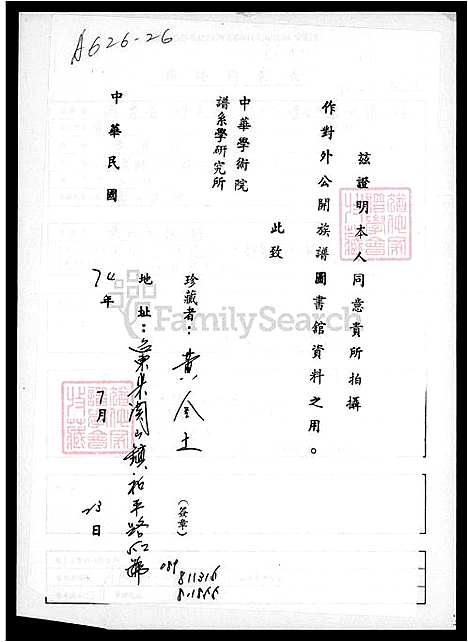 A626-26
茲證明本人同意貴所拍攝
作對外公開族譜圖書館資料之用。
此致
中華學術院
譜系學研究所
珍藏者：黃金土
(簽章)
地址：台東縣關山鎮和平路
號
089
811316
中華民國
74年
7月
23日
FamilySearch